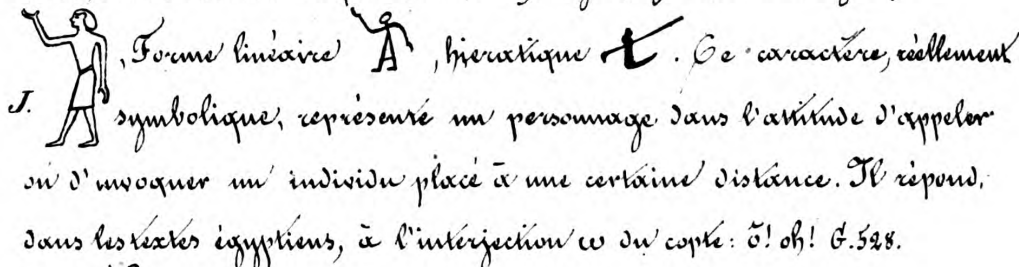 , Forme linéaire , hieratique . Ce caractère, réellement
J. symbolique, représente un personnage dans l'attitude d'appeler
ou d'invoquer un individu placé à une certaine distance. Il répond,
dans les textes égyptiens, à l'interjection ω du copte: ô! oh! G. 528.